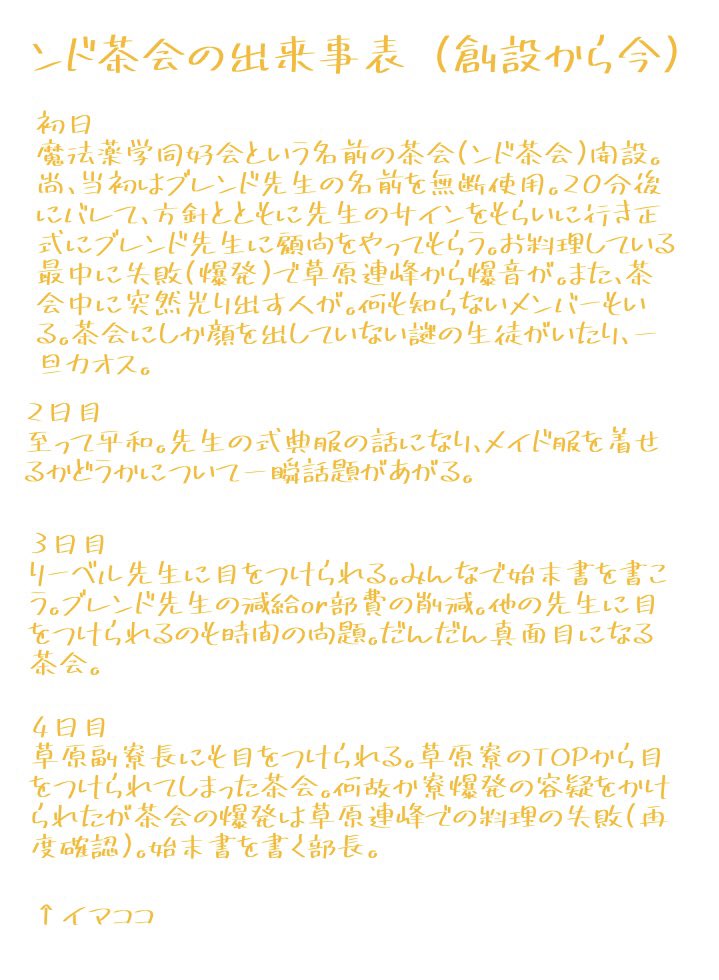 ンド茶会の出来事表（創設から今）
初日
魔法薬学同好会という名前の茶会(ンド茶会)開設。
尚、当初はブレンド先生の名前を無断使用。20分後
にバレて、方針とともに先生のサインをもらいに行き正
式にブレンド先生に顧問をやってもらう。お料理している
最中に失敗(爆発)で草原連峰から爆音が。また、茶
会中に突然光り出す人が。何も知らないメンバーもい
る。茶会にしか顔を出していない謎の生徒がいたり、一
旦カオス。
2日目
至って平和。先生の式典服の話になり、メイド服を着せ
るかどうかについて一瞬話題があがる。
3日目
リーベル先生に目をつけられる。みんなで始末書を書こ
う。ブレンド先生の減給or部費の削減。他の先生に目
をつけられるのも時間の問題。だんだん真面目になる
茶会。
4日目
草原副寮長にも目をつけられる。草原寮のTOPから目
をつけられてしまった茶会。何故か寮爆発の容疑をかけ
られたが茶会の爆発は草原連峰での料理の失敗(再
度確認)。始末書を書く部長。
↑イマココ